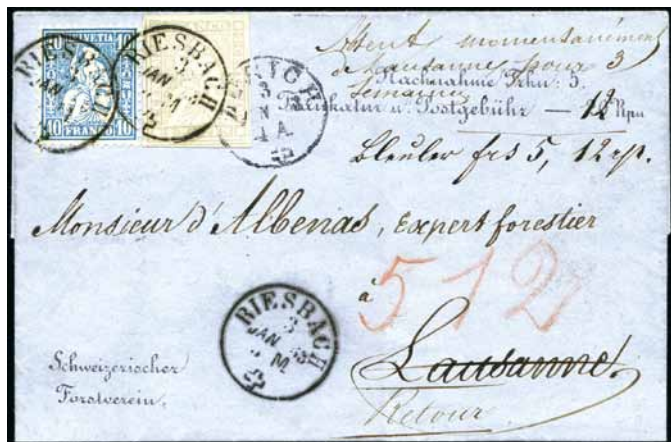 10 HELVETIA 10
10 FRANCO 10
RIESBACH
3
JAN
M
RIESBACH
3
JAN
M
ZÜRICH
3
1 A
Absent momentanément
de Lausanne pour 3
semaines
Nachnahme Frkn: 5.
Frankatur u. Postgebühr — 12 Rpn
Bleuler frs 5, 12 rp.
Monsieur d'Albenas, Expert forestier
à
512
RIESBACH
3
JAN 63
M
Lausanne.
Schweizerischer
Forstverein.
Retour